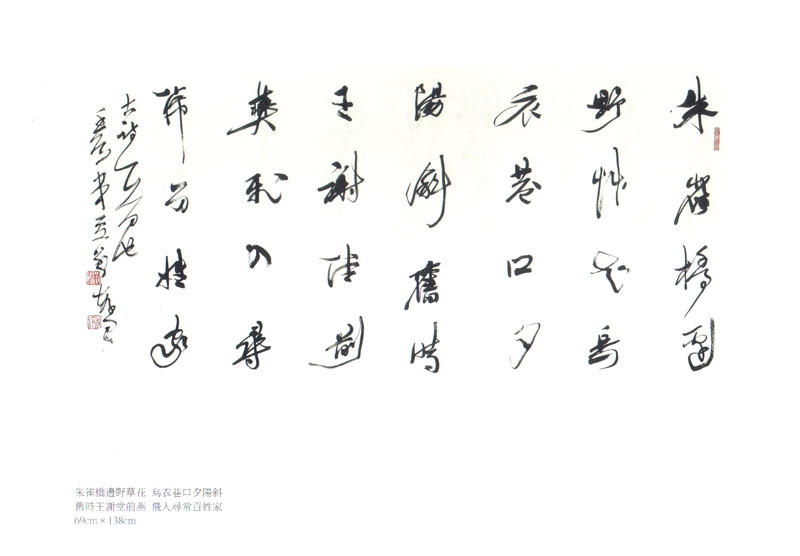 朱雀橋邊
野艸花烏
衣巷口夕
陽斜舊時
王謝堂前
燕飛入尋
常百姓家
朱雀橋邊野草花 烏衣巷口夕陽斜
舊時王謝堂前燕 飛入尋常百姓家
69cm × 138cm